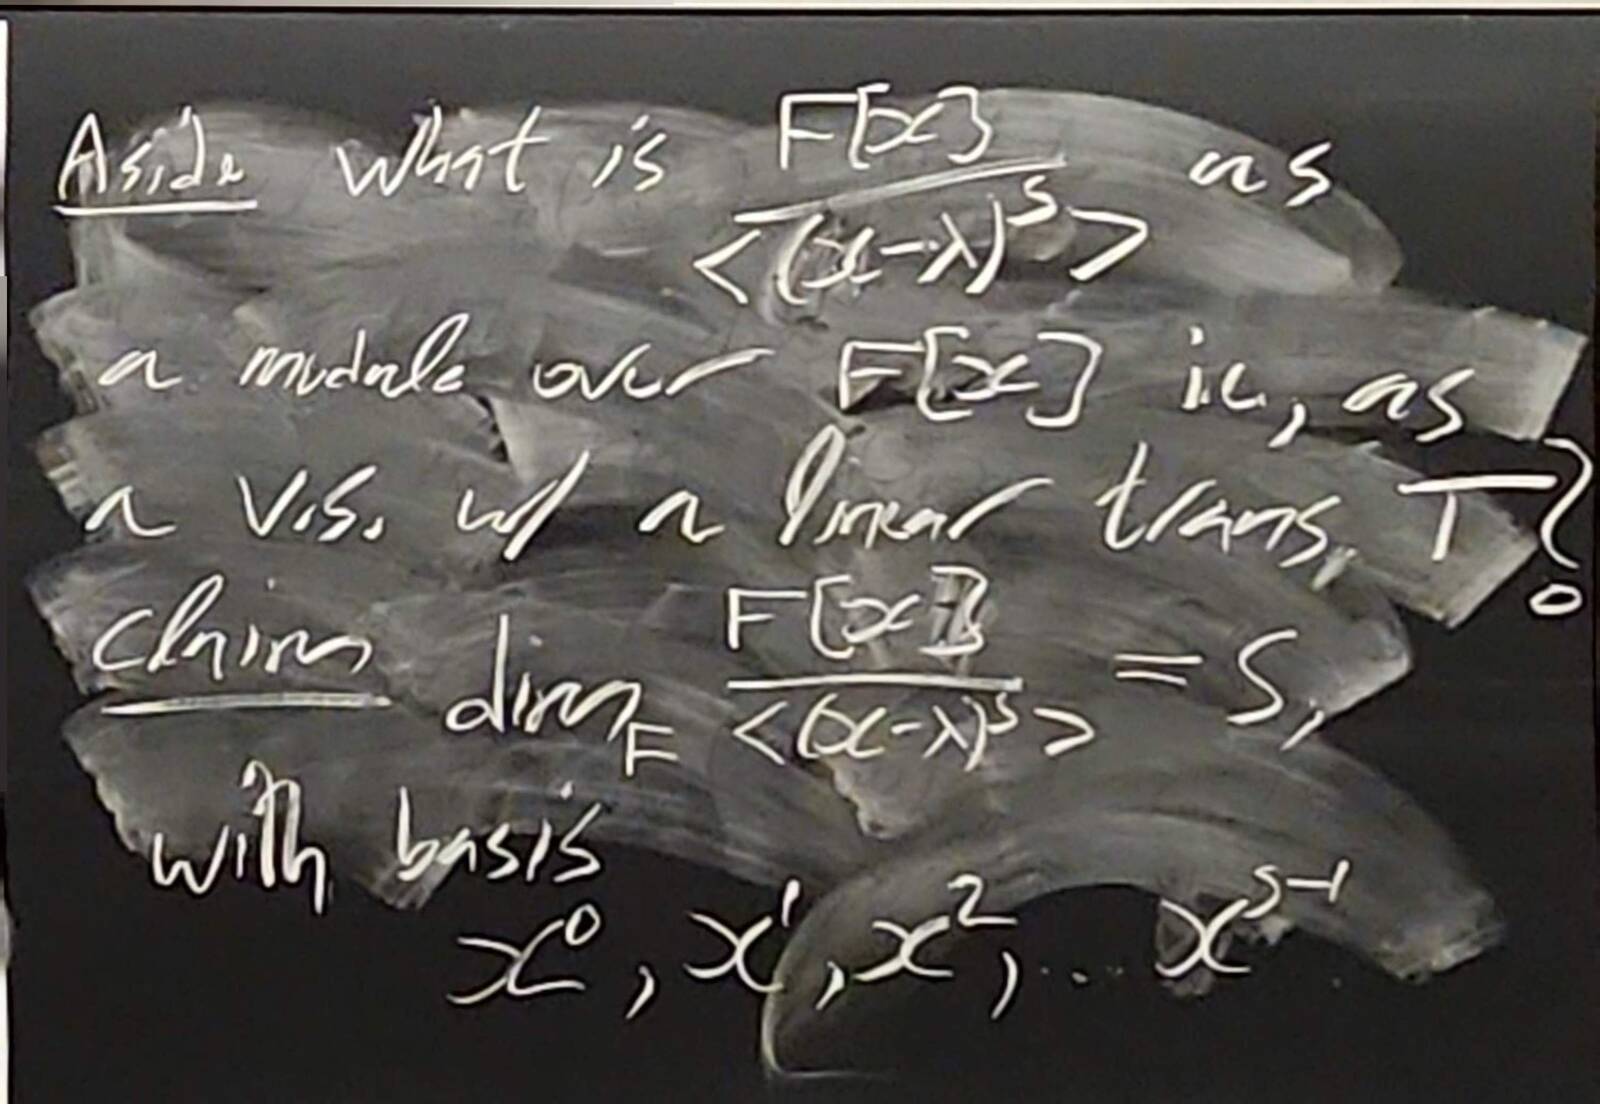 Aside What is F[x] / <(x-λ)^s> as
a module over F[x] i.e., as
a v.s. w/ a linear trans. T?
Claim dim_F F[x] / <(x-λ)^s> = s,
with basis
x^0, x^1, x^2, ... x^{s-1}